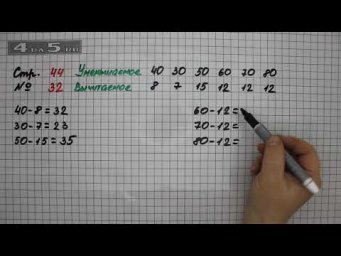 4 на 5.ru
Стр. 44 Уменьшаемое 40 30 50 60 70 80
№ 32 Вычитаемое 8 7 15 12 12 12
40-8=32 60-12=
30-7=23 70-12=
50-15=35 80-12=